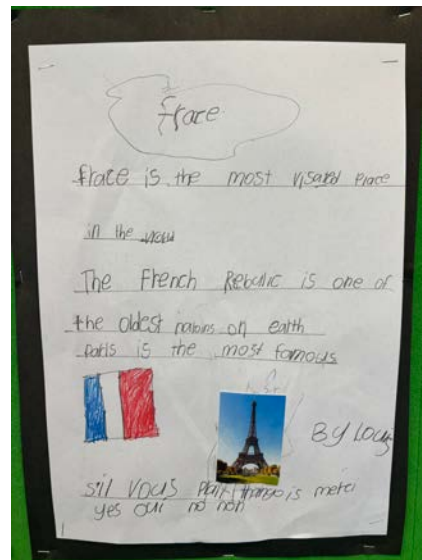 frace
frace is the most visared place
in the
The French Rebulic is one of
the oldest naions on earth
paris is the most famous
BY Louis
sil vous plait is merci
yes oui no non